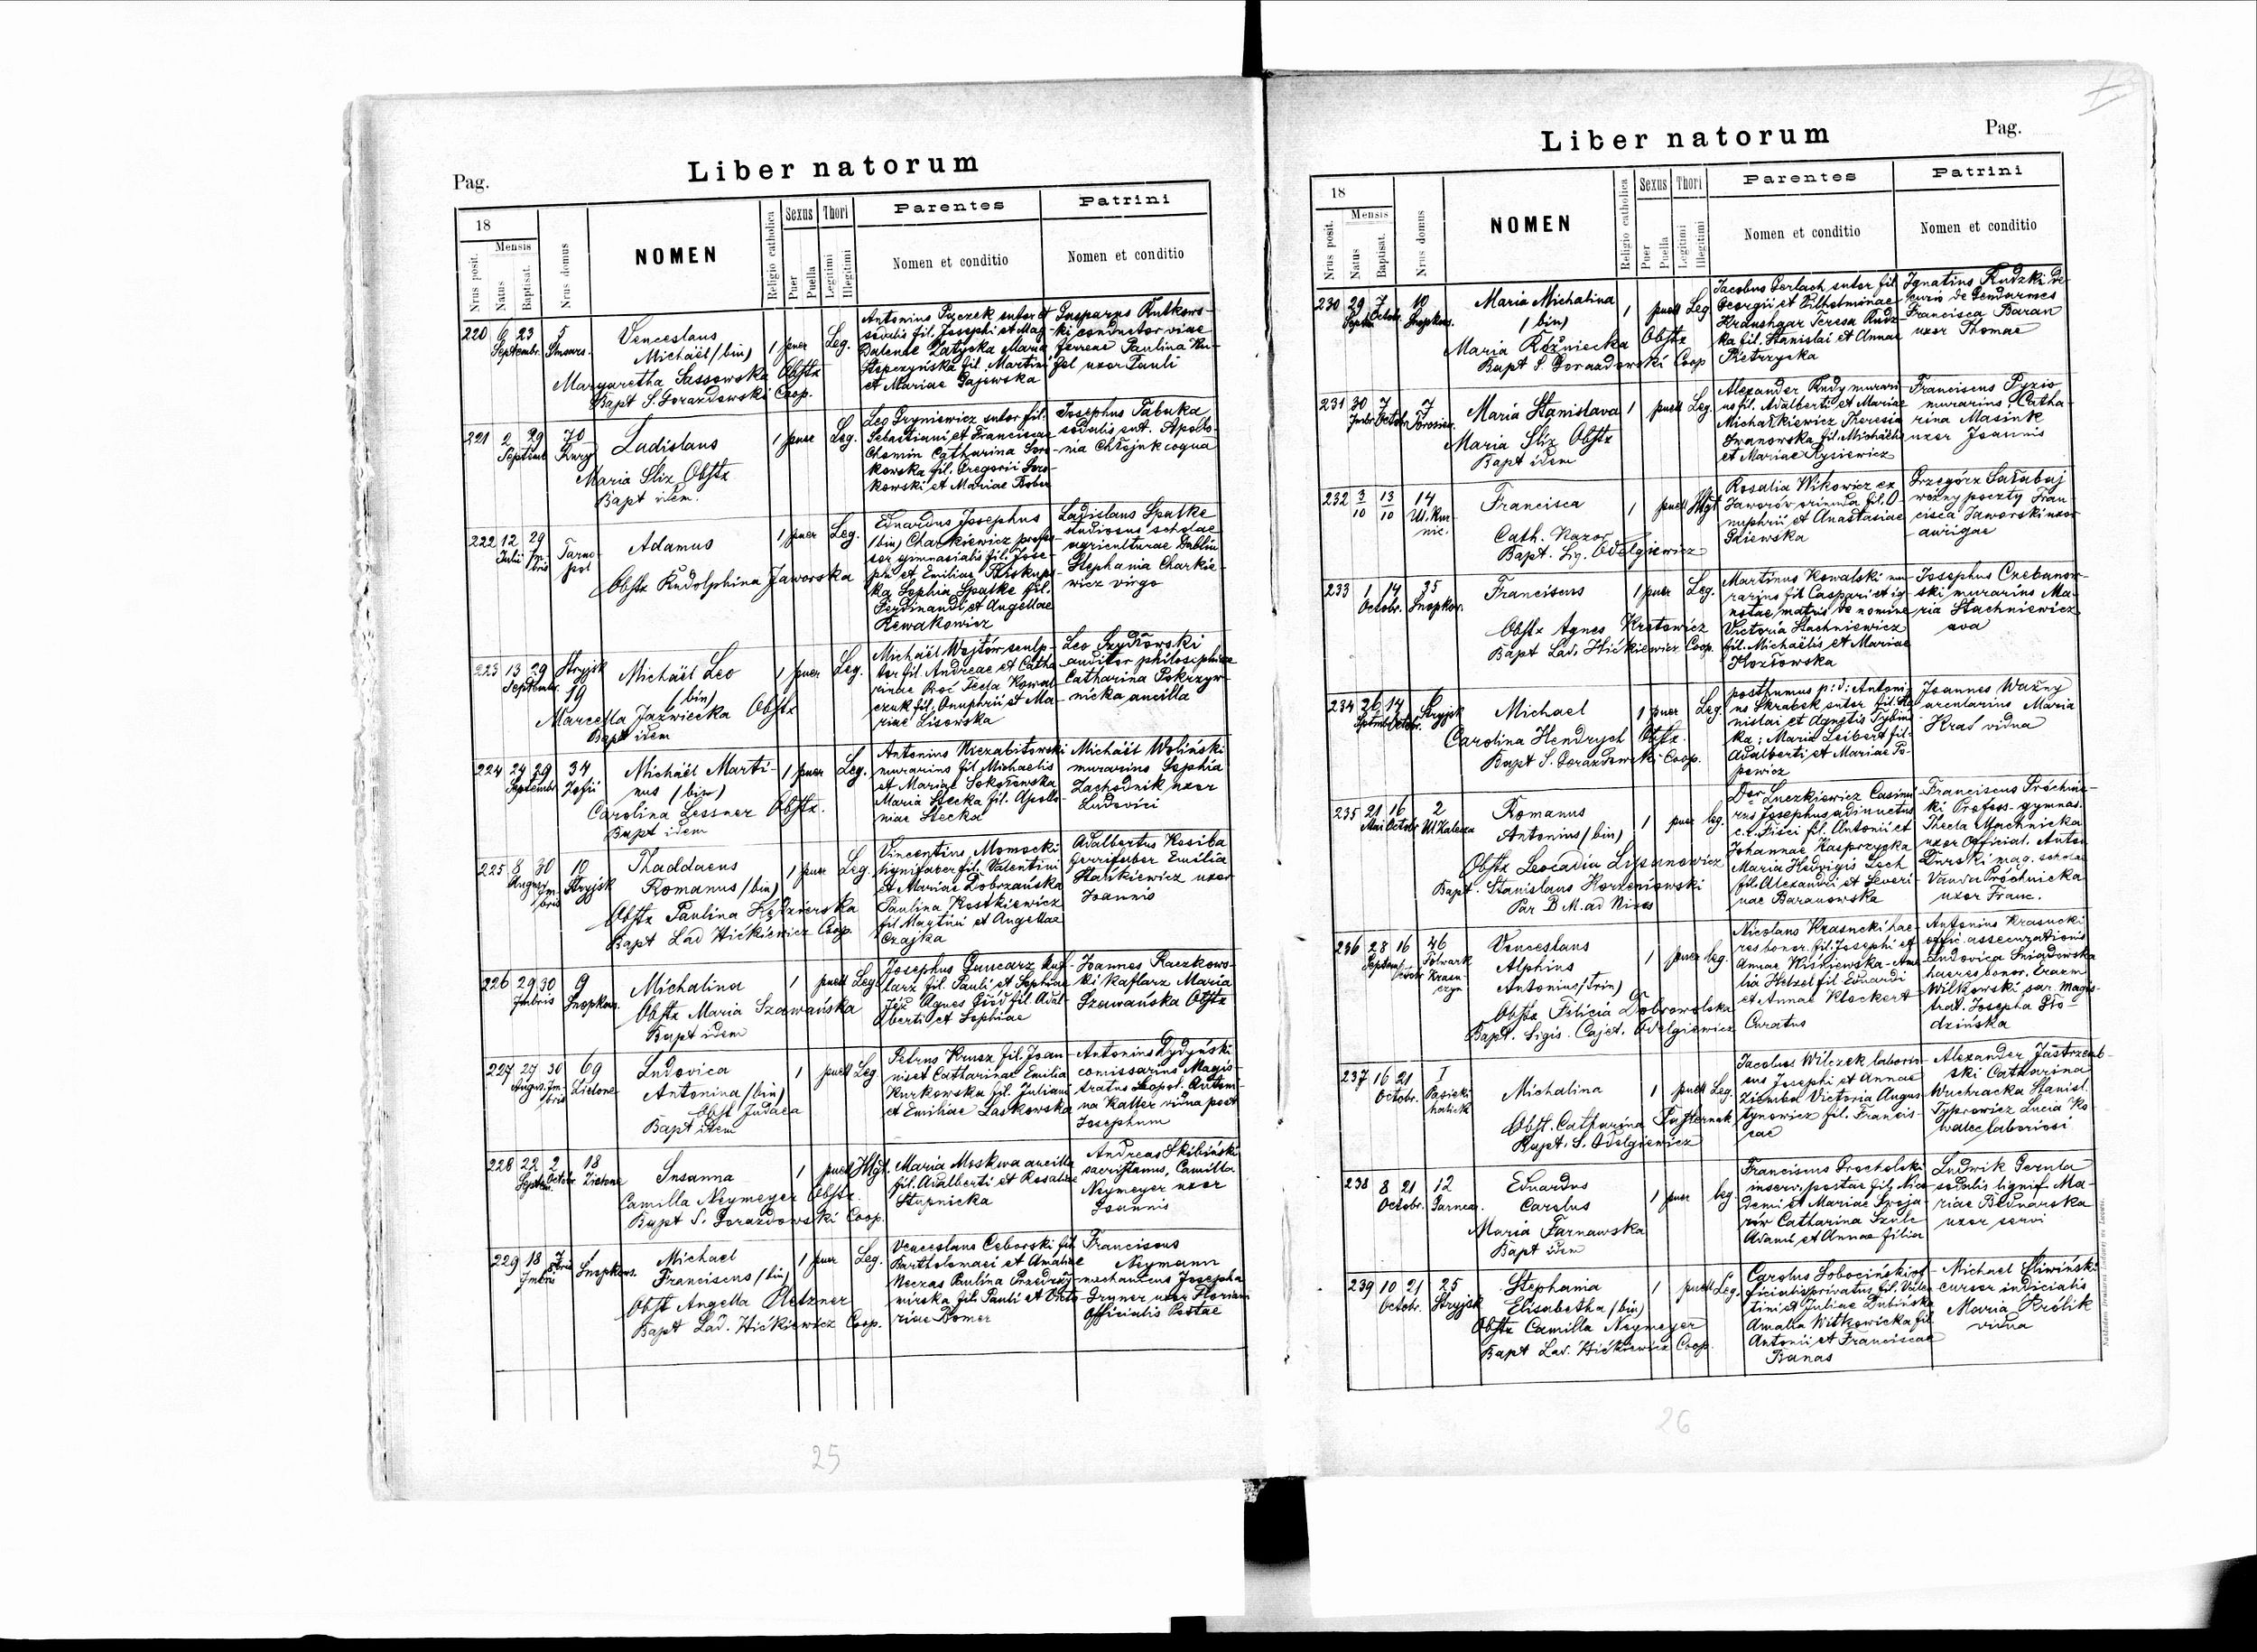 Liber natorum
Pag.
18
Mensis
Nrus posit.
Natus
Baptisat.
Nrus domus
NOMEN
Religio catholica
Sexus
Puer
Puella
Thori
Legitimi
Illegitimi
Parentes
Nomen et conditio
Patrini
Nomen et conditio
220 6 23 5
Septembr.
Venceslaus
Michaël (bin)
1 puer Leg.
Margaretha Sassowska Obstx
Bapt S. Gorazdowski Coop.
Antonius Pączek sutor et
sodalis fil. Josephi et Mag-
Zatycka Maria
Stepczyńska fil. Martini
et Mariae Gajewska
Gasparus Rutkows-
ki conductor viae
ferreae Paulina
uxor Pauli
221 2 29 70
Septembr
Ladislaus
1 puer Leg.
Maria Sliz Obstx
Bapt idem.
Leo Gryniewicz sutor fil.
Sebastiani et Franciscae
Chomin Catharina Soro-
kowska fil. Gregorii Soro-
kowski et Mariae Bober
Josephus Tabuka
sodalis sut. Apolo-
nia
222 12 29 Tarno-
Julii bris pol
Adamus
1 puer Leg.
Obstx Rudolphina Jaworska
Eduardus Josephus
(bin) Charkiewicz profes-
sor gymnasialis fil. Jose-
phi et Emiliae Biskups-
ka Sophia Spatke fil.
Ferdinandi et Angellae
Rewakowicz
Ladislaus Spatke
studiosus scholae
agriculturae Dublin
Stephania Charkie-
wicz virgo
223 13 29 Stryjsk
Septembr. 19
Michaël Leo
(bin)
1 puer Leg.
Marcella Jazwiecka Obstx
Bapt idem
Michaël Wojtów sculp-
tor fil. Andreae et Catha
rinae Proć Tecla Kowal
czuk fil. Onuphrii et Ma-
riae Lisowska
Leo Szydłowski
auditor philosophiae
Catharina Pokrzyw-
nicka ancilla
224 24 29 34
Septembr Zofii
Michaël Marti-
nus (bin)
1 puer Leg.
Carolina Lessner Obstx.
Bapt idem
Antonius Niezabitowski
murarius fil. Michaelis
et Mariae Sokołowska
Maria Stecka fil. Apollo-
niae Stecka
Michaël Woliński
murarius Sophia
Zachodnik uxor
Ludovici
225 8 30 10
Stryjsk
Thaddaeus
Romanus (bin)
1 puer Leg.
Obstx Paulina Kędzierska
Bapt Lad Hićkiewicz Coop.
Vincentius Momocki
lignifaber fil. Valentini
et Mariae Dobrzańska
Paulina Kostkiewicz
fil. Martini et Angellae
Czajka
Adalbertus Kosiba
ferrifaber Emilia
Stankiewicz uxor
Joannis
226 29 30 9
Snopkow.
Michalina
1 puell Leg.
Obstx Maria Szawańska
Bapt idem
Josephus Gancarz kaf-
larz fil. Pauli et Sophiae
Agnes fil. Adal-
berti et Sophiae
Joannes Raczkows-
ki kaflarz Maria
Szawańska Obstx
227 27 30 69
Zielona
Ludovica
Antonina (bin)
1 puell Leg
Obst Judaea
Bapt idem
Petrus Krusz fil. Joan-
nis et Catharinae Emilia
Kurkowska fil. Juliani
et Emiliae Laskowska
Antonius Dydyński
comissarius Magis-
tratus Leopol. Anton-
na Katter vidua post
Josephum
228 22 2 18
Septem. Octobr Zielona
Susanna
1 puell Illgt.
Camilla Neymeyer Obstx.
Bapt S. Gorazdowski Coop.
Maria Moskwa ancilla
fil. Adalberti et Rosaliae
Stupnicka
Andreas Skibiński
sacristanus, Camilla
Neymeyer uxor
Joannis
229 18 7
Snopkow.
Michael
Franciscus (bin)
1 puer Leg.
Obst Angella Pletzner
Bapt Lad. Hićkiewicz Coop.
Venceslaus Ceborski fil
Bartholomaei et Amaliae
Neczas Paulina
fil. Pauli et Victo-
riae Bomer
Franciscus
Neymann
mechanicus Josepha
Gryner uxor Floriani
Officialis Postae
25
Liber natorum
Pag.
18
Mensis
Nrus posit.
Natus
Baptisat.
Nrus domus
NOMEN
Religio catholica
Sexus
Puer
Puella
Thori
Legitimi
Illegitimi
Parentes
Nomen et conditio
Patrini
Nomen et conditio
230 29 7 10
Septem Octobr. Snopkow.
Maria Michalina
(bin)
1 puell Leg
Maria Różniecka Obstx
Bapt S. Gorazdowski Coop
Jacobus Gerlach sutor fil
Georgii et Vilhelminae
Kraushaar Teresa Rudz
ka fil. Stanislai et Annae
Pietrzycka
Ignatius Rudzki de
curio de Gendarmes
Francisca Baran
uxor Thomae
231 30 7 7
Octobr
Maria Stanislava
1 puell Leg.
Maria Sliz Obstx
Bapt idem
Alexander Rudy murari
us fil. Adalberti et Mariae
Michałkiewicz Theresia
Iwanowska fil. Michaëlis
et Mariae Rysiewicz
Franciscus Pyzio
murarius Catha-
rina Masink
uxor Joannis
232 3/10 13/10 14
Ul. Kur-
nic.
Francisca
1 puell Illgt
Cath. Kazor
Bapt. Sig. Odelgiewicz
Rosalia Wikowicz ex
Jaworów oriunda fil. O-
nuphrii et Anastasiae
Gdiewska
Grzegórz Sałabaj
woźny poczty Fran-
cisca Jaworski uxor
aurigae
233 1 14 35
Octobr. Snopkow.
Franciscus
1 puer Leg.
Obstx Agnes Kretowicz
Bapt Lad. Hićkiewicz Coop.
Martinus Kowalski mu-
rarius fil Caspari et ig
notae matris de nomine
Victoria Stachniewicz
fil. Michaëlis et Mariae
Kozłowska
Josephus Czebanow-
ski murarius Ma-
ria Stachniewicz
ava
234 26 14 Stryjsk
Septmbr Octobr.
Michael
1 puer Leg.
Carolina Hendrych Obstx.
Bapt S. Gorazdowski Coop.
posthumus p: d: Antoni
us Skrabek sutor fil. Sta
nislai et Agnetis
ka; Maria Leibert fil-
Adalberti et Mariae Po-
powicz
Joannes Ważny
arcularius Maria
Kras vidua
235 21 16 2
Octobr
Romanus
Antonius (bin)
1 puer leg.
Obstx Leocadia Lysanowicz
Bapt. Stanislaus Korzeniowski
Par B M. ad Nives
Der Luczkiewicz Casimi-
rus Josephus adiunctus
c. r. Fisci fil. Antonii et
Johannae Kasprzycka
Maria Hedvigis Loch
fil. Alexandri et Severi-
nae Baranowska
Franciscus Próchnic-
ki Profess. gymnas.
Thecla Machnicka
uxor Official. Anton
Durski mag. scholae
Vanda Próchnicka
uxor Franc.
236 28 16 46
Septem Octobr Folwark
Krasu-
czyn
Venceslaus
Alphius
Antonius (trin)
1 puer leg.
Obstx Felicia Dobrowolska
Bapt. Sigis. Cajet. Odelgiewicz Curatus
Nicolaus Krasucki hae-
res bonor. fil. Josephi et
Annae Wiśniewska-Ama
lia Hetzel fil Eduardi
et Annae Klockert
Antonius Krasucki
offic. assecurationis
Ludovica Sniadowska
haeres bonor. Erazm
Wilkowski sar. magis-
trat. Josepha Sło-
dzińska
237 16 21 I
Octobr. Pasieki
halick
Michalina
1 puell Leg.
Obst. Catharina Pasternak
Bapt. S. Odelgiewicz
Jacobus Wilczek laborio-
sus Josephi et Annae
Ziemba Victoria Augus-
tynowicz fil. Francis-
cae
Alexander Jastrzemb-
ski Catharina
Wuchracka Stanisl.
Typrowicz Lucia Ko-
walec laboriosi
238 8 21 12
Octobr. Garncar.
Eduardus
Carolus
1 puer leg
Maria Tarnawska
Bapt idem
Franciscus Grocholski
inserv. postae fil. Nico-
demi et Mariae Swoja-
rów Catharina Szulc
Adami et Annae filia
Ludwik Gernla
sodalis lignif. Ma-
riae Bednarska
uxor servi
239 10 21 25
Octobr. Stryjsk
Stephania
Elisabetha (bin)
1 puell Leg.
Obstx Camilla Neymeyer
Bapt Lad. Hićkiewicz Coop.
Carolus Sobociński of
ficialis privatus fil. Valen
tini et Juliae Dubińska
Amalia Witkowicka fil
Antonii et Franciscae
Banas
Michael Sliwiński
cursor iudicialis
Maria Królik
vidua
26